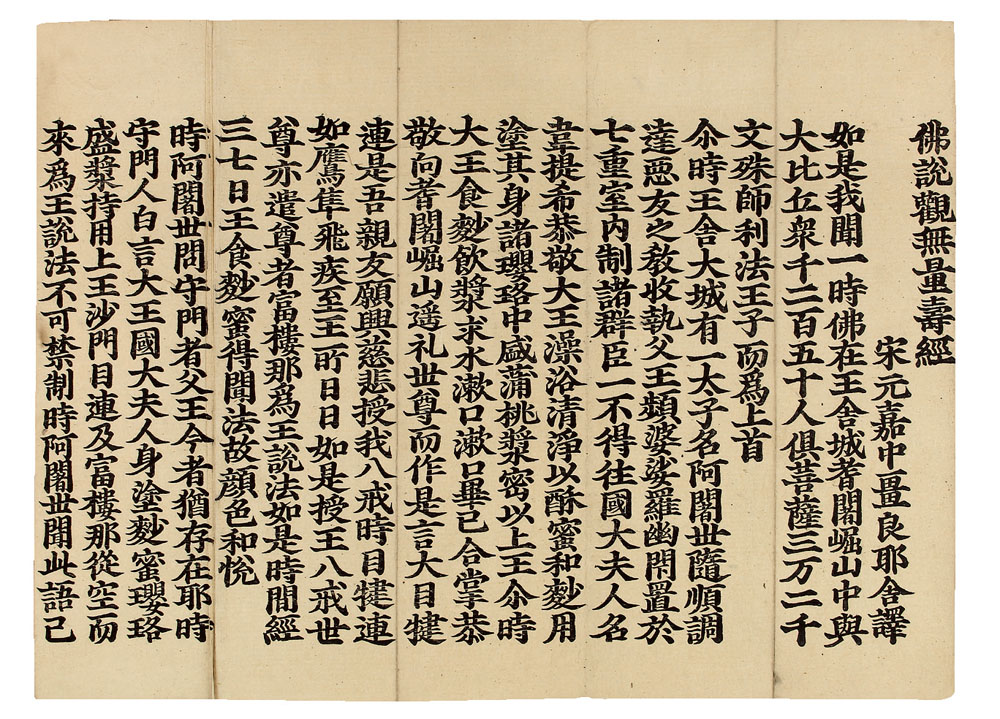 佛說觀無量壽經
宋元嘉中畺良耶舍譯
如是我聞一時佛在王舍城耆闍崛山中與
大比丘衆千二百五十人俱菩薩三万二千
文殊師利法王子而爲上首
尒時王舍大城有一太子名阿闍世隨順調
達惡友之敎收執父王頻婆娑羅幽閇置於
七重室内制諸群臣一不得往國大夫人名
韋提希恭敬大王澡浴清淨以酥蜜和麨用
塗其身諸瓔珞中盛蒲桃漿密以上王尒時
大王食麨飮漿求水漱口漱口畢已合掌恭
敬向耆闍崛山遥礼世尊而作是言大目犍
連是吾親友願興慈悲授我八戒時目犍連
如鷹隼飛疾至王所日日如是授王八戒世
尊亦遣尊者富樓那爲王說法如是時間經
三七日王食麨蜜得聞法故顔色和悅
時阿闍世問守門者父王今者猶存在耶時
守門人白言大王國大夫人身塗麨蜜瓔珞
盛漿持用上王沙門目連及富樓那從空而
來爲王說法不可禁制時阿闍世聞此語已